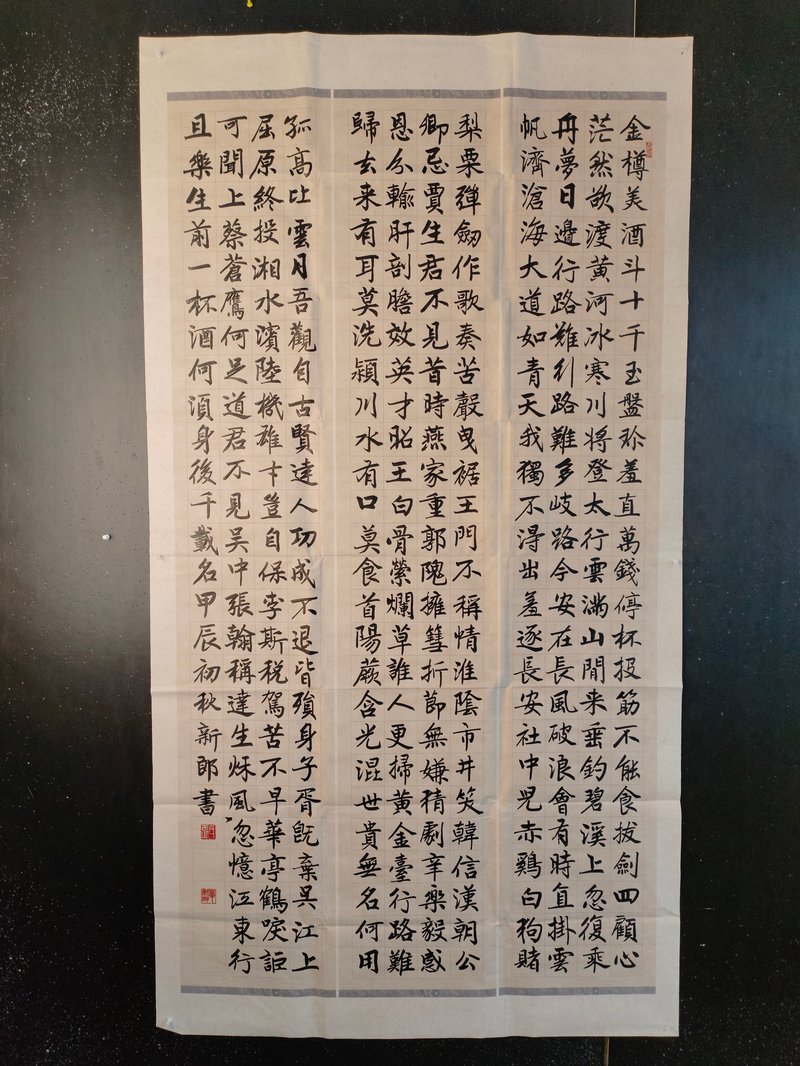 金樽美酒斗十千玉盤珎羞直萬錢停杯投筯不能食拔劍四顧心
茫然欲渡黃河冰寒川將登太行雲滿山閒来垂釣碧溪上忽復乘
舟夢日邊行路難行路難多岐路今安在長風破浪會有時直掛雲
帆濟滄海大道如青天我獨不得出羞逐長安社中兒赤鷄白狗賭
梨栗彈劒作歌奏苦聲曳裾王門不稱情淮陰市井笑韓信漢朝公
卿忌賈生君不見昔時燕家重郭隗擁篲折節無嫌猜劇辛樂毅感
恩分輸肝剖膽效英才昭王白骨縈爛草誰人更掃黃金臺行路難
歸去来有耳莫洗潁川水有口莫食首陽蕨含光混世貴無名何用
孤高比雲月吾觀自古賢達人功成不退皆殞身子胥既棄吳江上
屈原終投湘水濱陸機雄才豈自保李斯税駕苦不早華亭鶴唳詎
可聞上蔡蒼鷹何足道君不見吴中張翰稱達生秌風忽憶江東行
且樂生前一杯酒何須身後千載名甲辰初秋新郎書